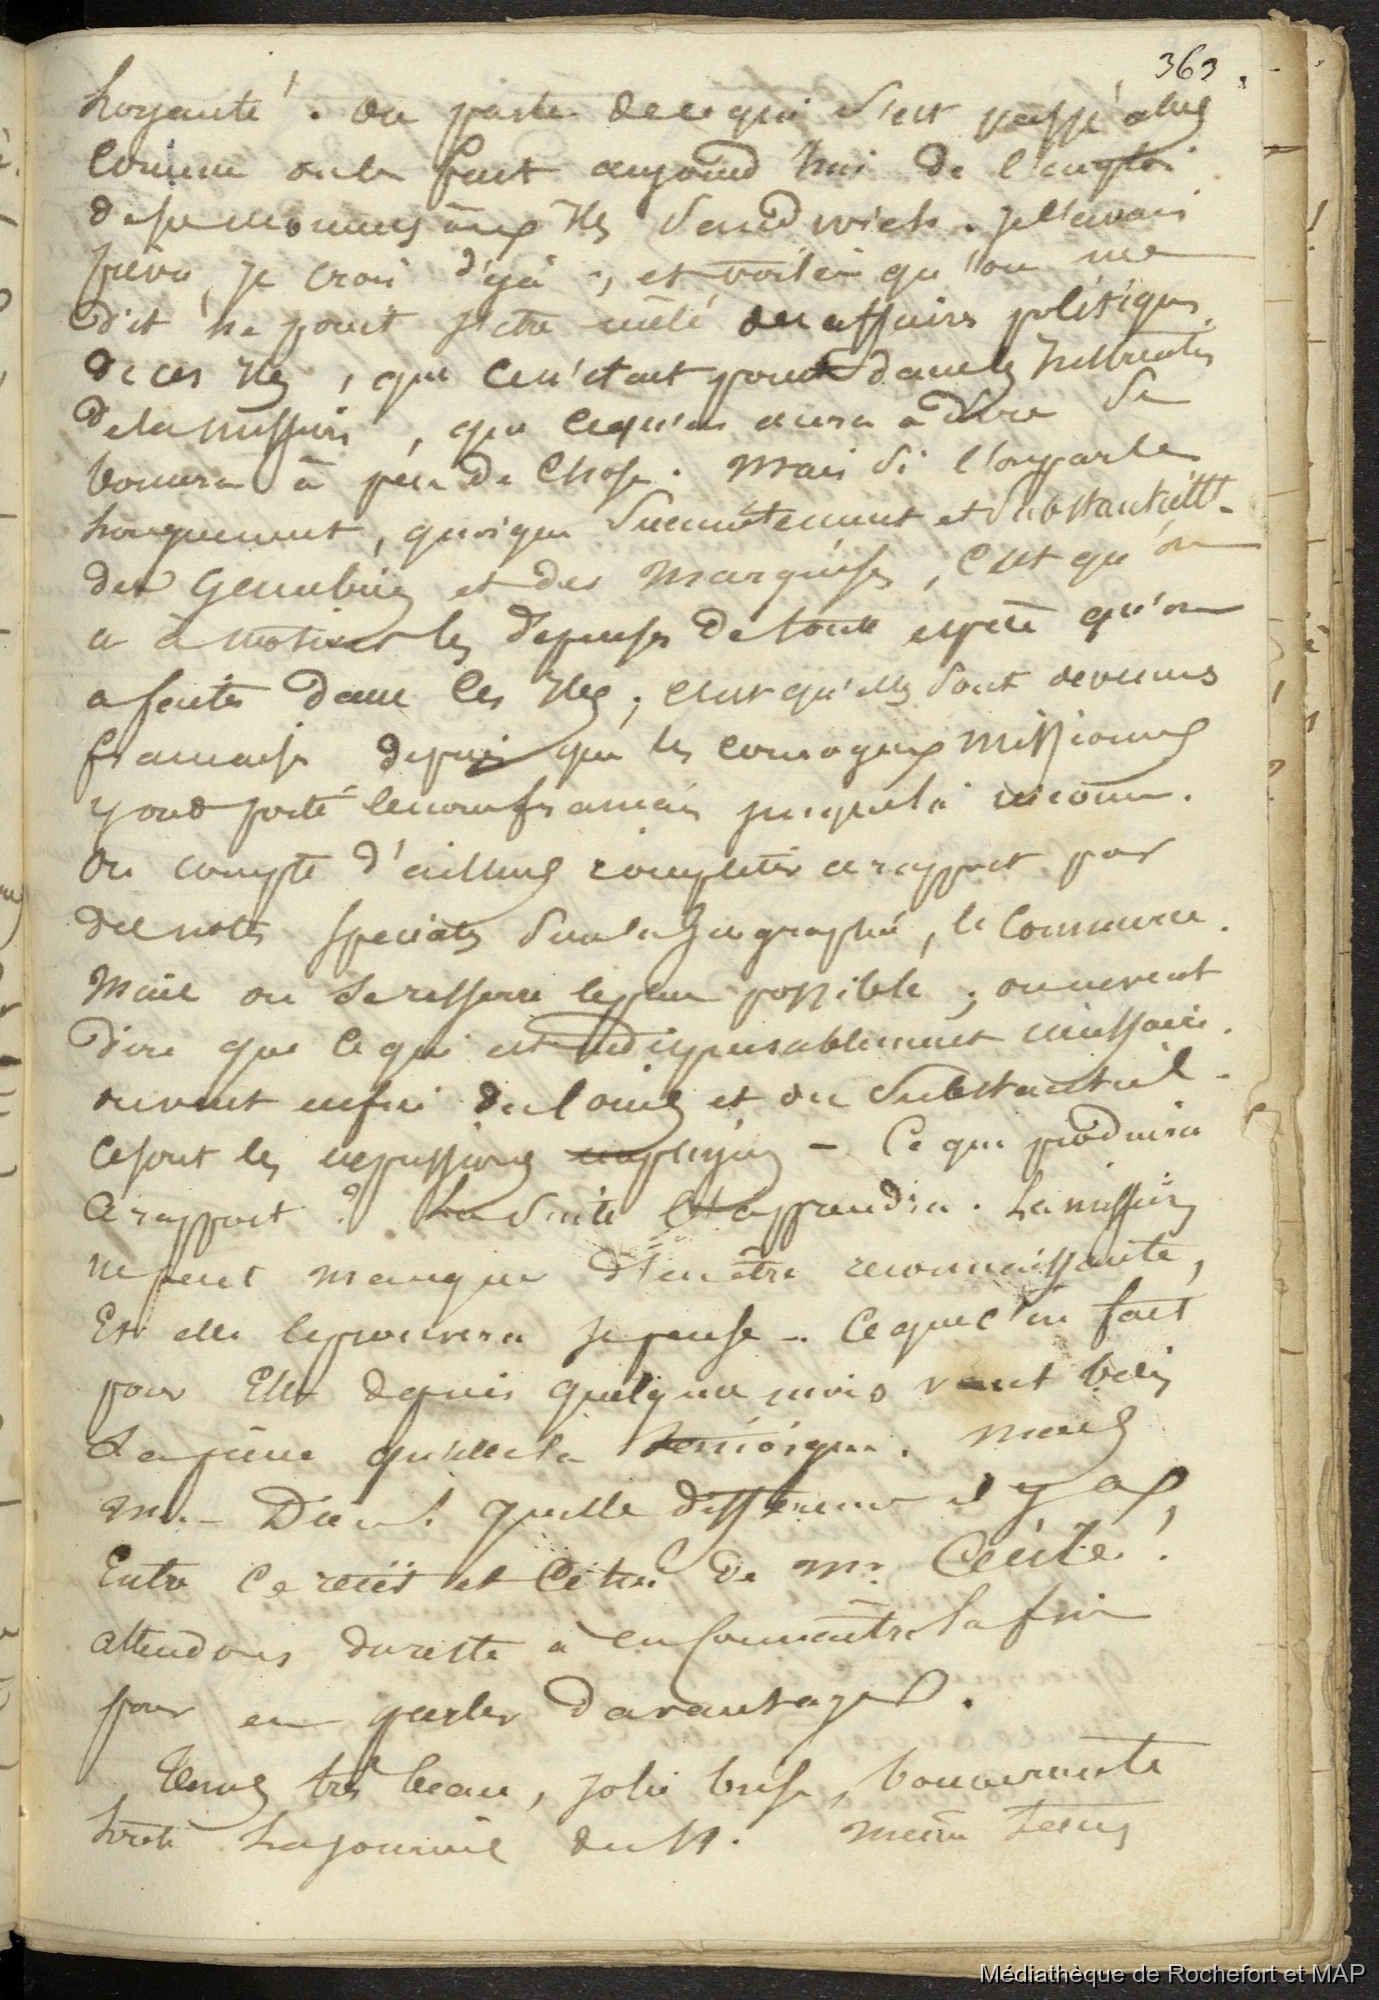 363.
loyauté. On parle de ce qui s'est passé alors
comme on le fait aujourd'hui de l'emploi
de su monung aux Iles Sandwich. Je l'avais
prévu, je crois déjà, et voilà qu'on me
dit ne point s'etre mêlé des affaires politiques
de ces Iles, que ce n'etait point dans les Instructions
de la mission, que ce qu'on aura à dire se
bornera à peu de chose. Mais si l'on parle
longuement, quoique succintement et substantiellt.
des Gambier et des Marquises, c'est qu'on
a à motiver les dépenses de toute espèce qu'on
a faites dans ces Iles; c'est qu'elles sont devenues
francaises depuis que les courageux missionnes
y ont porté le nom francais jusques là inconnu.
On compte d'ailleurs completer ce rapport par
des notes speciales sur la geographie, le commerce.
Mais on se resserre le plus possible; on ne veut
dire que ce qui est indispensablement necessaire.
on veut enfin du loius et du substantiel.
ce sont les expressions employées – Ce que produira
ce rapport? La suite l'apprendra. La mission
ne peut manquer d'en être reconnaissante,
Et elle le prouvera je pense – Ce que l'on fait
pour Elle depuis quelques mois vaut bien
la peine qu'elle le témoigne. Mais
mon Dieu! quelle difference il y a,
Entre ce recit et celui de Mr. Cécile!
attendons du reste à en connaître la fin
pour en parler davantage.
Tems très beau, jolie brise, bonne route
toute la journée du 11. Même tems
Médiathèque de Rochefort et MAP